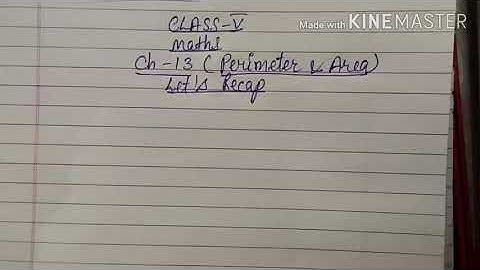 Made with KINEMASTER
CLASS-V
Maths
Ch-13 ( Perimeter & Area)
Let's Recap